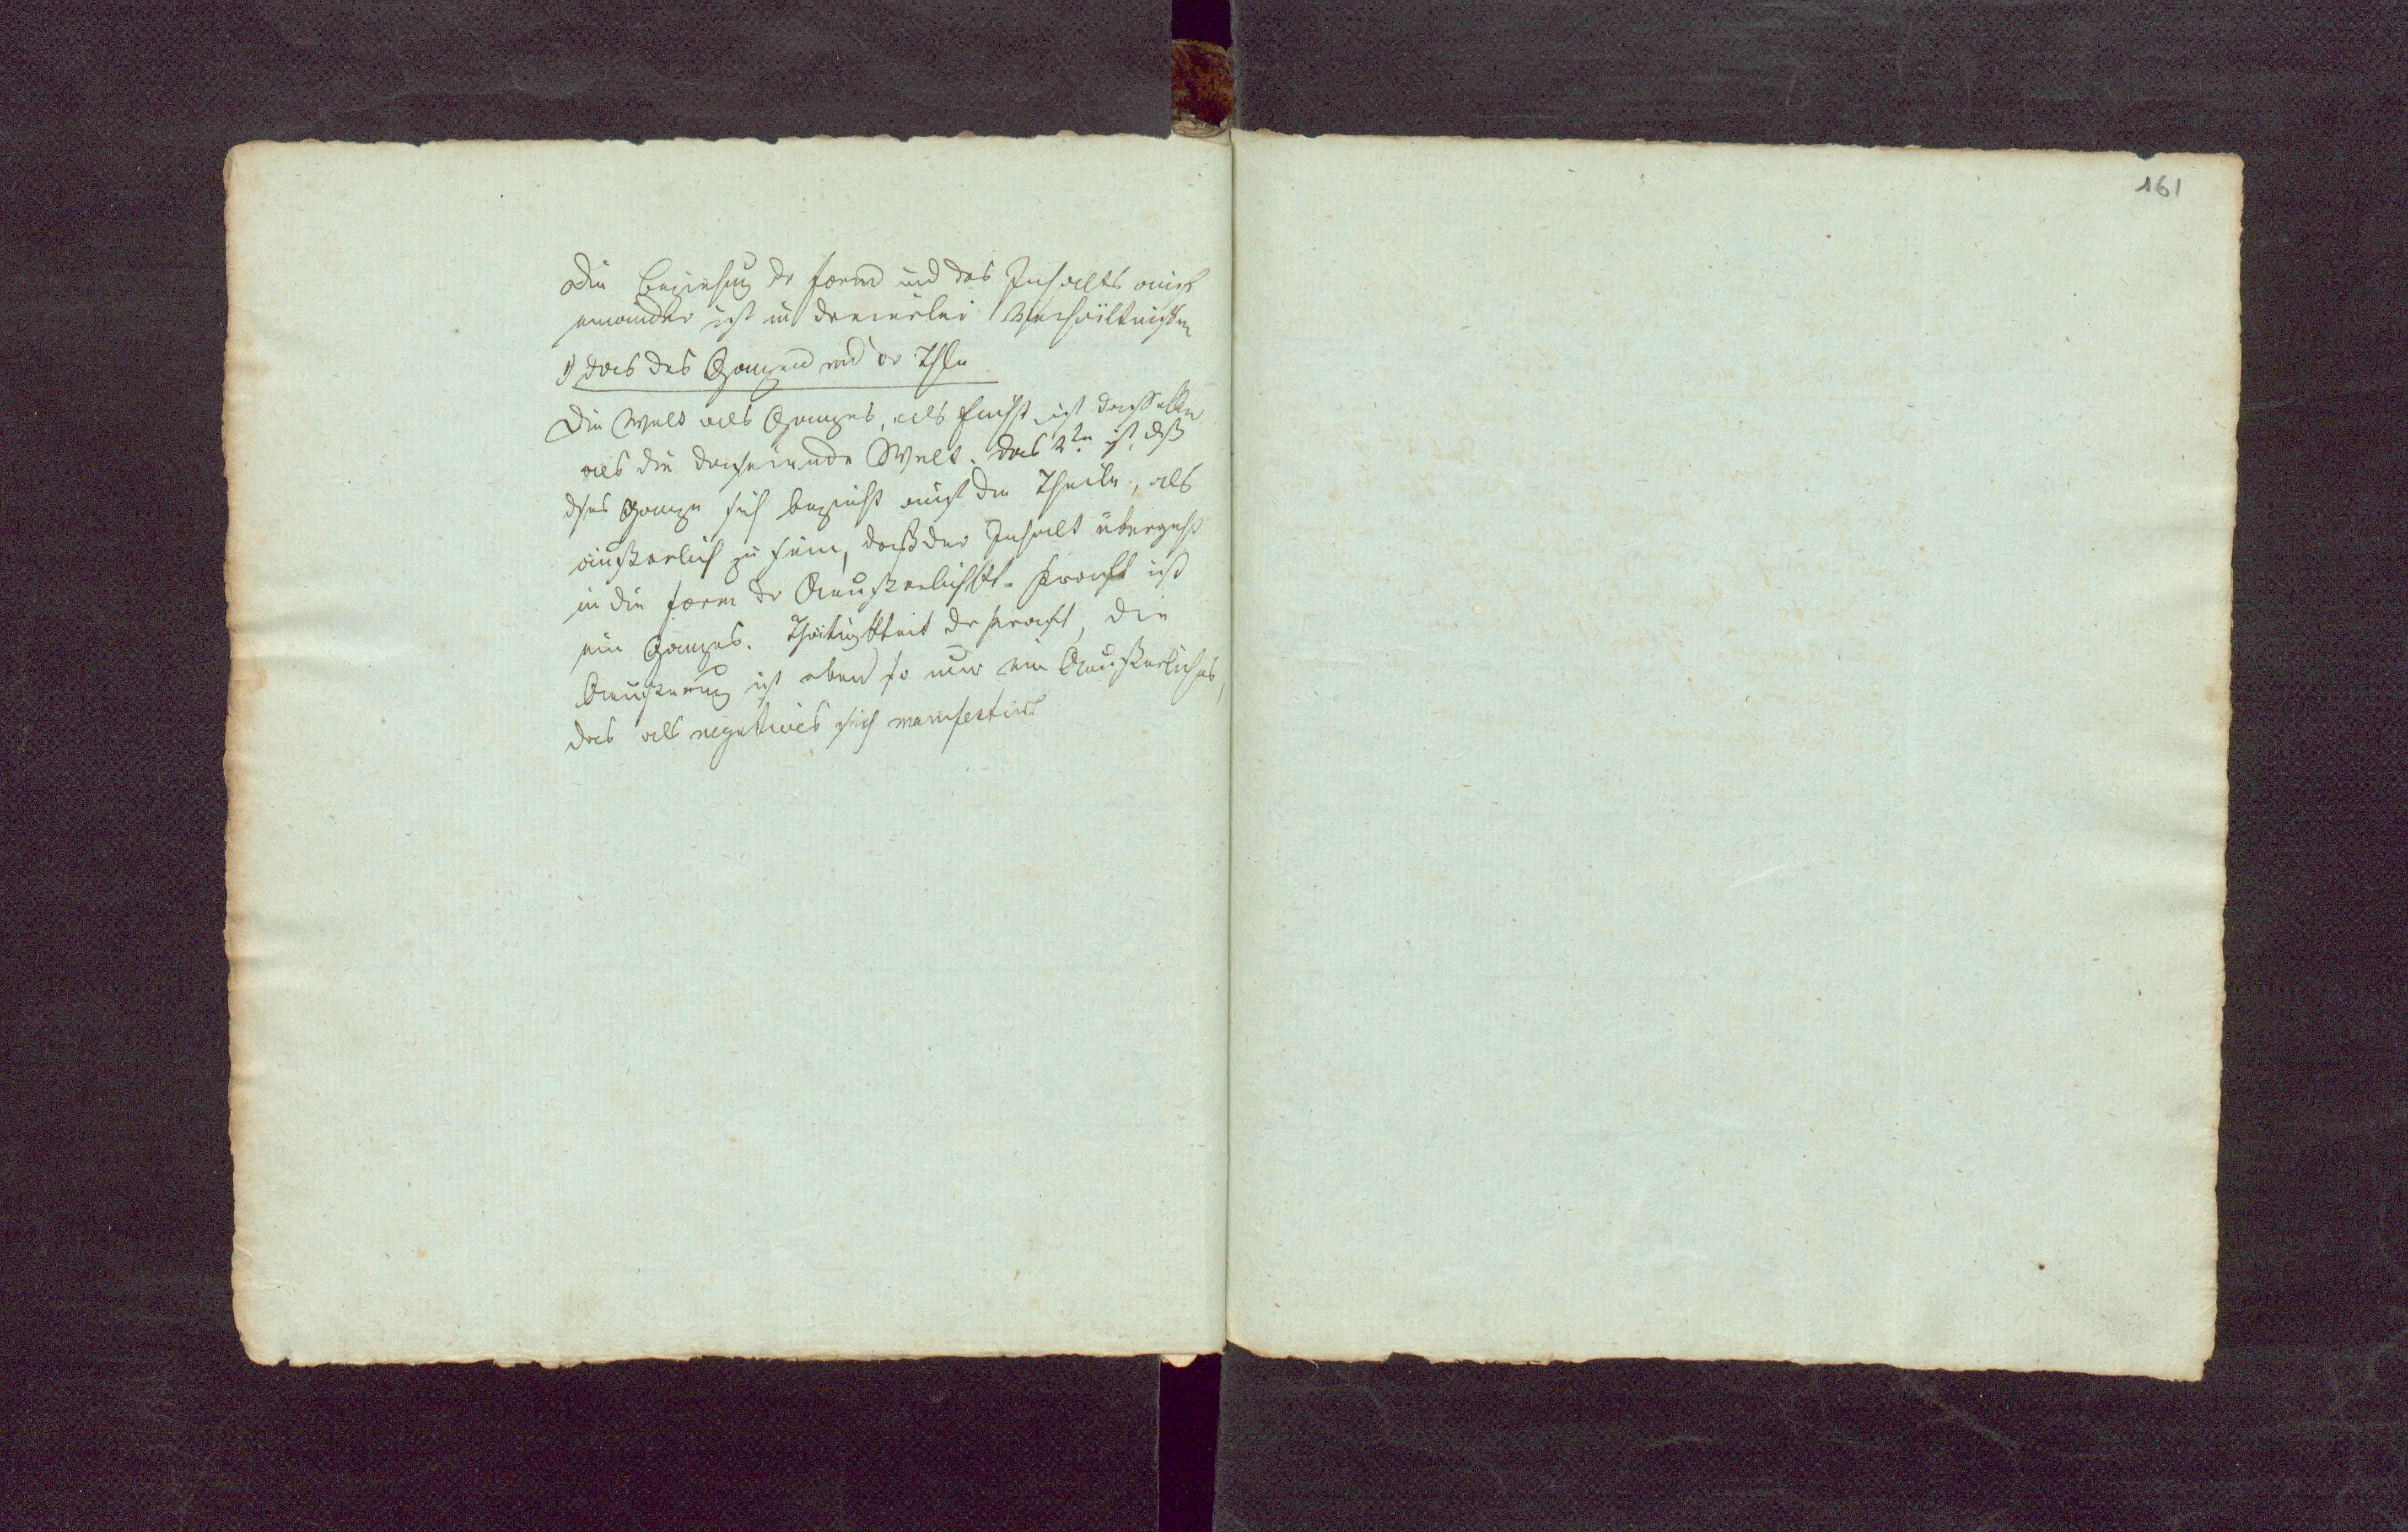 Die Beziehung dr Form und des Inhalts auf
einander ist in dreierlei Verhältnissen
1) das des Ganzen und dr Thle
Die Welt als Ganzes, als ist dasselbe
als die daseiende Welt. Das 2te ist, dß
dses Ganze sich bezieht auf die Theile, als
äußerlich zu seine, daß der Inhalt übergeht
in die Form dr Aeußerlichkt. Kraft ist
ein Ganzes. Thätigkeit dr Kraft, die
Aeußerung ist eben so nur ein Aeußerliches,
das als negatives sich manifestirt
161